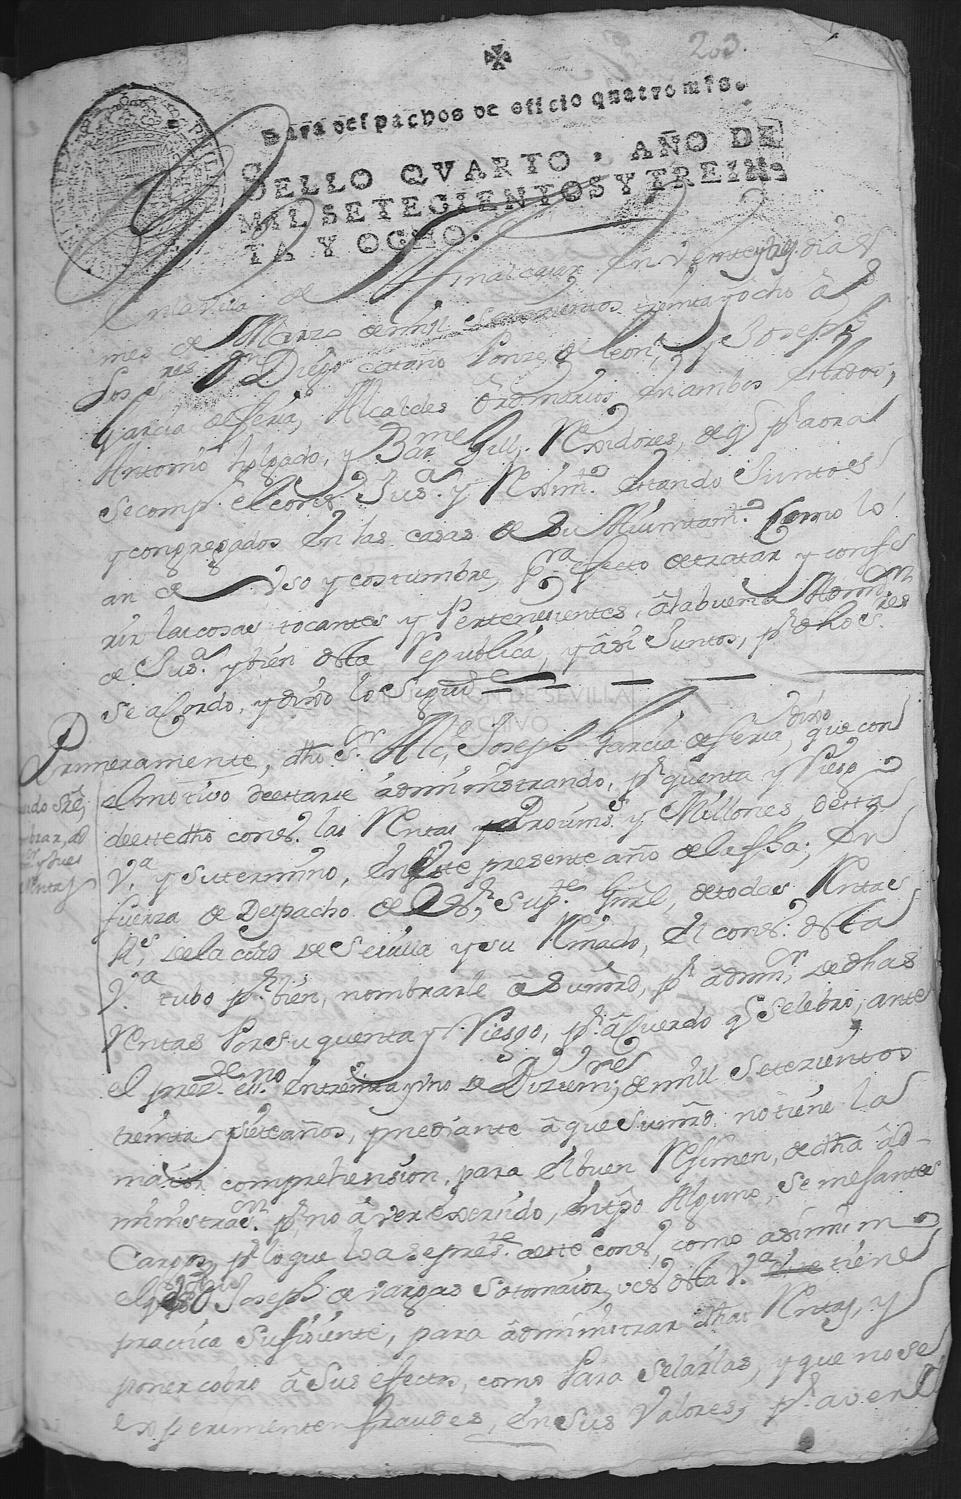 203.
Para despachos de oficio quatro mrs.
SELLO QVARTO, AÑO DE
MIL SETECIENTOS Y TREIN-
TA Y OCHO.
En la Villa de Almanalcazar en Veinte y tres dias del
mes de Marzo de mill setezientos treinta y ocho años
los s.res Dn Diego Cataño Ponze de leon, y Joseph
Garcia de feria, Alcaldes ordinarios en ambos estados,
Antonio holgado, y Bar.me Gill, Rexidores, de q.e p.r aora
se comp.e el conss.o Jus.a y Reximt.o estando Juntos
y congregados en las casas de su Aiuntam.to Como lo
an de Vso y costumbre, p.ra efecto de tratar y confe
rir las cosas tocantes y Pertenesientes, â la buena Admin.on
de Jus.a y bien desta Republica, y asi Juntos, p.r dhos s.res
se acordo, y dixo lo Siguie.te
Primeramente, dho S.r Alc.e Joseph Garcia de feria, dixo que con
el motivo de estarse administrando, p.r quenta y Riesgo
de este dho conss.o las Rentas Prouins. y Millones desta
V.a y su termino, en este presente año de la fha; En
fuerza de Despacho de el s.r Sup.te Gnrl, de todas Rentas
R.s de la ciud de Seuilla y su Reinado, el conss.o desta
V.a tubo p.r bien, nombrarle â Su mrd, p.r admin.r de dhas
Rentas Por su quenta y Riesgo, p.r acuerdo q.e selebro, ante
el prez.te es.no en treinta y vno de Diziem.re de mill setezientos
treinta y siete años, y mediante â que su mrd. no tiene la
maior comprehension, para el buen Regimen, de dha ad-
ministraz.on p.r no aver exersido, en tpo Alguno, semejantes
Cargos, p.r lo que los a represe.te a este conss.o como asimismo
el que Dn Joseph de Vargas Sotomaior, vess.o desta V.a tiene
practica sufisiente, para administrar dhas Rentas, y
poner cobro â sus efectos, como Para selarlas, y que no se
experimenten fraudes, en sus Valores, p.r aver